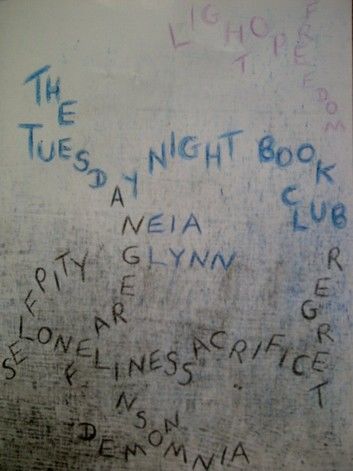 LIGHT
HOPE
FREEDOM
THE
TUESDAY NIGHT BOOK
CLUB
ANGER
NEIA
GLYNN
SELF PITY
FEAR
REGRET
LONELINESS
SACRIFICE
INSOMNIA
DEMON